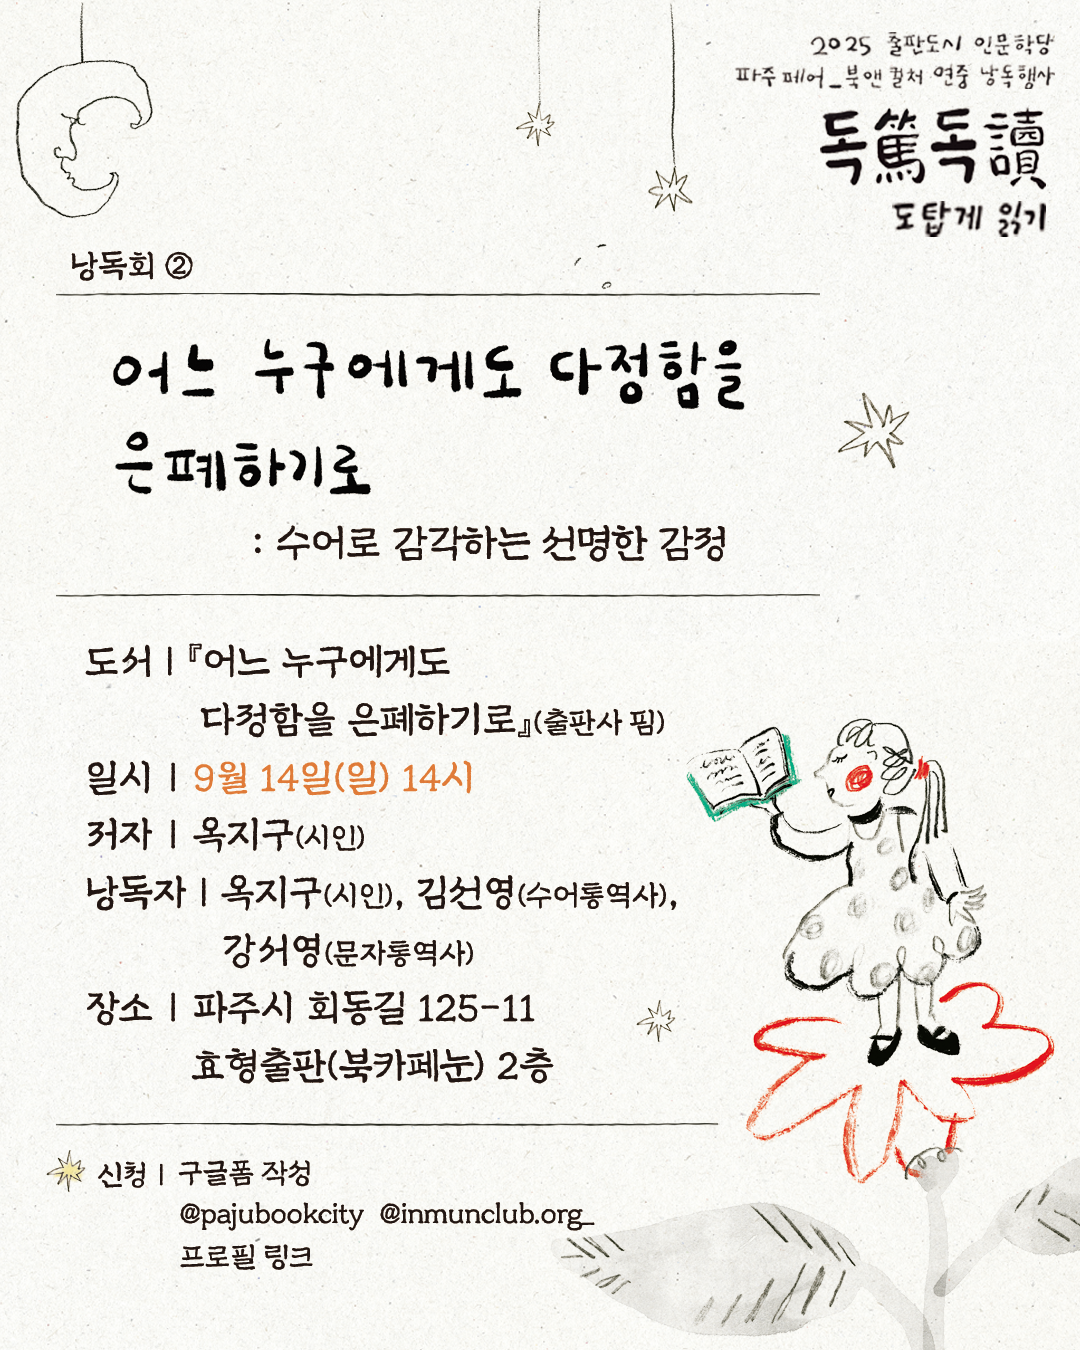 2025 출판도시 인문학당
파주페어_북앤컬처 연중 낭독행사
독篤독讀
도탑게 읽기
낭독회 ②
어느 누구에게도 다정함을
은폐하기로
: 수어로 감각하는 선명한 감정
도서 | 『어느 누구에게도
다정함을 은폐하기로』(출판사 핌)
일시 | 9월 14일(일) 14시
저자 | 옥지구(시인)
낭독자 | 옥지구(시인), 김선영(수어통역사),
강서영(문자통역사)
장소 | 파주시 회동길 125-11
효형출판(북카페눈) 2층
신청 | 구글폼 작성
@pajubookcity @inmunclub.org_
프로필 링크